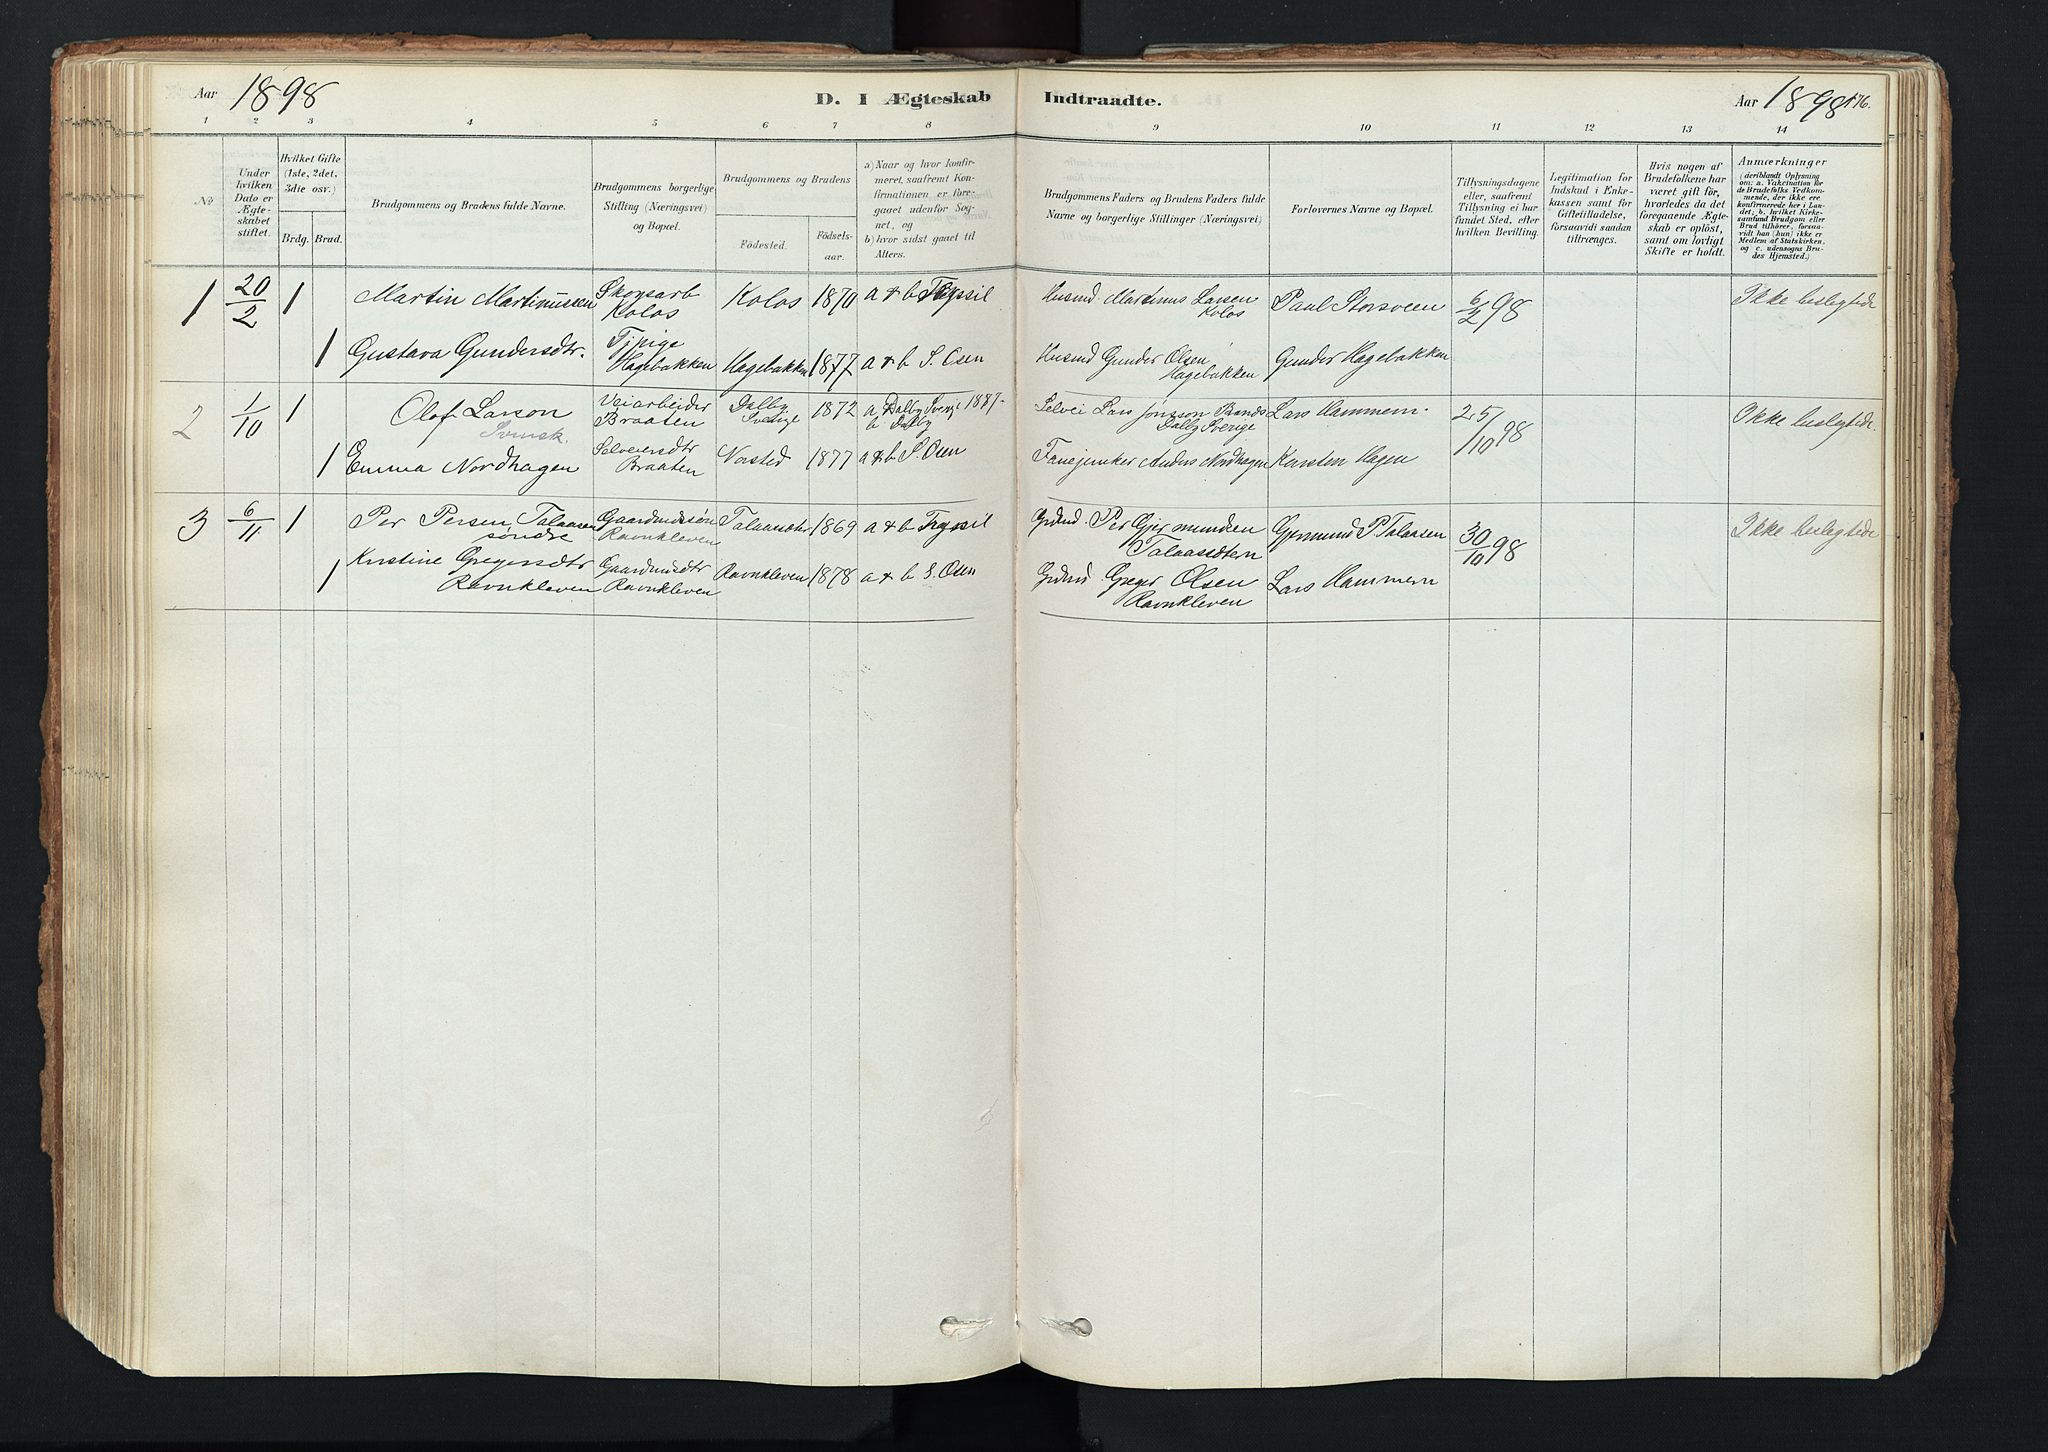 Aar 1898
D. I Ægteskab Indtraadte.
Aar 1898 176.
1 2 3 4 5 6 7 8 9 10 11 12 13 14
No
Under hvilken Dato er Ægteskabet stiftet.
Hvilket Gifte (1ste, 2det, 3die osv.)
Brdg. Brud.
Brudgommens og Brudens fulde Navne.
Brudgommens borgerlige Stilling (Næringsvei) og Bopæl.
Brudgommens og Brudens
Födested. Födselsaar.
a) Naar og hvor konfirmeret, saafremt Konfirmationen er foregaaet udenfor Sognet, og
b) hvor sidst gaaet til Alters.
Brudgommens Faders og Brudens Faders fulde Navne og borgerlige Stillinger (Næringsvei)
Forlovernes Navne og Bopæl.
Tillysningsdagene eller, saafremt Tillysning ei har fundet Sted, efter hvilken Bevilling.
Legitimation for Indskud i Enkekassen samt for Giftetilladelse, forsaavidt saadan tiltrænges.
Hvis nogen af Brudefolkene har været gift för, hvorledes da det foregaaende Ægteskab er oplöst, samt om lovligt Skifte er holdt.
Anmærkninger (deriblandt Oplysning om: a. Vakcination for de Brudefolks Vedkommende, der ikke ere konfirmerede her i Landet; b. hvilket Kirkesamfund Brudgom eller Brud tilhörer, forsaavidt han (hun) ikke er Medlem af Statskirken, og c. udensogns Brudes Hjemsted.)
1 20/2 1 Martin Martinussen Skogsarb Kolos Kolos 1870 a & b Trysil Husmd Martinus Larsen Kolos Paul Storsveen 6/2 98 Ikke beslegtede
1 Gustava Gundersdtr. Tjpige Hagebakken Hagebakken 1877 a & b S. Osen Husmd Gunder Olsen Hagebakken Gunder Hagebakken
2 1/10 1 Olof Larson Svensk. Veiarbeider Braaten Dalby Sverige 1872 a Dalby Sverje 1887. b Dalby Selvei Lars Jonsson Dalby Sverige Lars Hammern. 25/10 98 Ikke beslegtede.
1 Emma Nordhagen Selveiersdtr Braaten Norsted 1877 a & b S. Osen Fanejunker Anders Nordhagen Karsten Hagen
3 6/11 1 Per Persen Talaasen söndre Gaardmdssøn Ravnkleven Talaassæter 1869 a & b Trysil Grdmd Per Gjermundsen Talaassæteren Gjermund P. Talaasen 30/10 98 Ikke beslegtede
1 Kristine Gregersdtr Ravnkleven Gaardmdsdtr Ravnkleven Ravnkleven 1878 a & b S. Osen Grdmd Greger Olsen Ravnkleven Lars Hammern